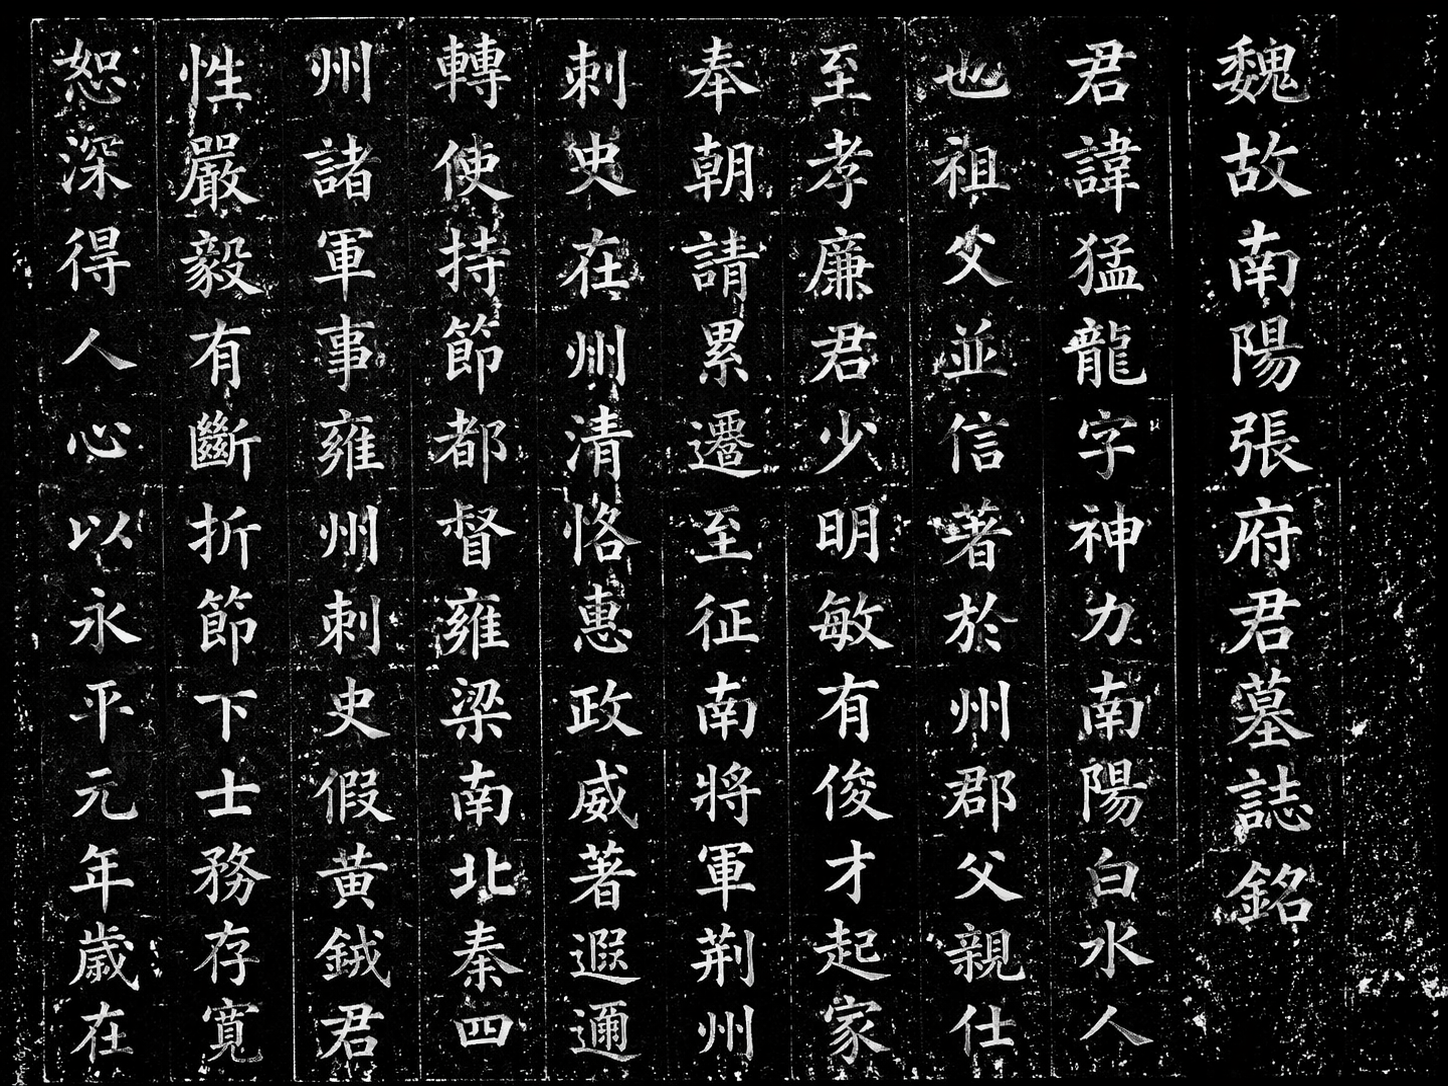 魏故南陽張府君墓誌銘
君諱猛龍字神力南陽白水人
也祖父並信著於州郡父親仕
至孝廉君少明敏有俊才起家
奉朝請累遷至征南將軍荆州
刺史在州清恪惠政威著遐邇
轉使持節都督雍梁南北秦四
州諸軍事雍州刺史假黄鉞君
性嚴毅有斷折節下士務存寛
恕深得人心以永平元年歳在